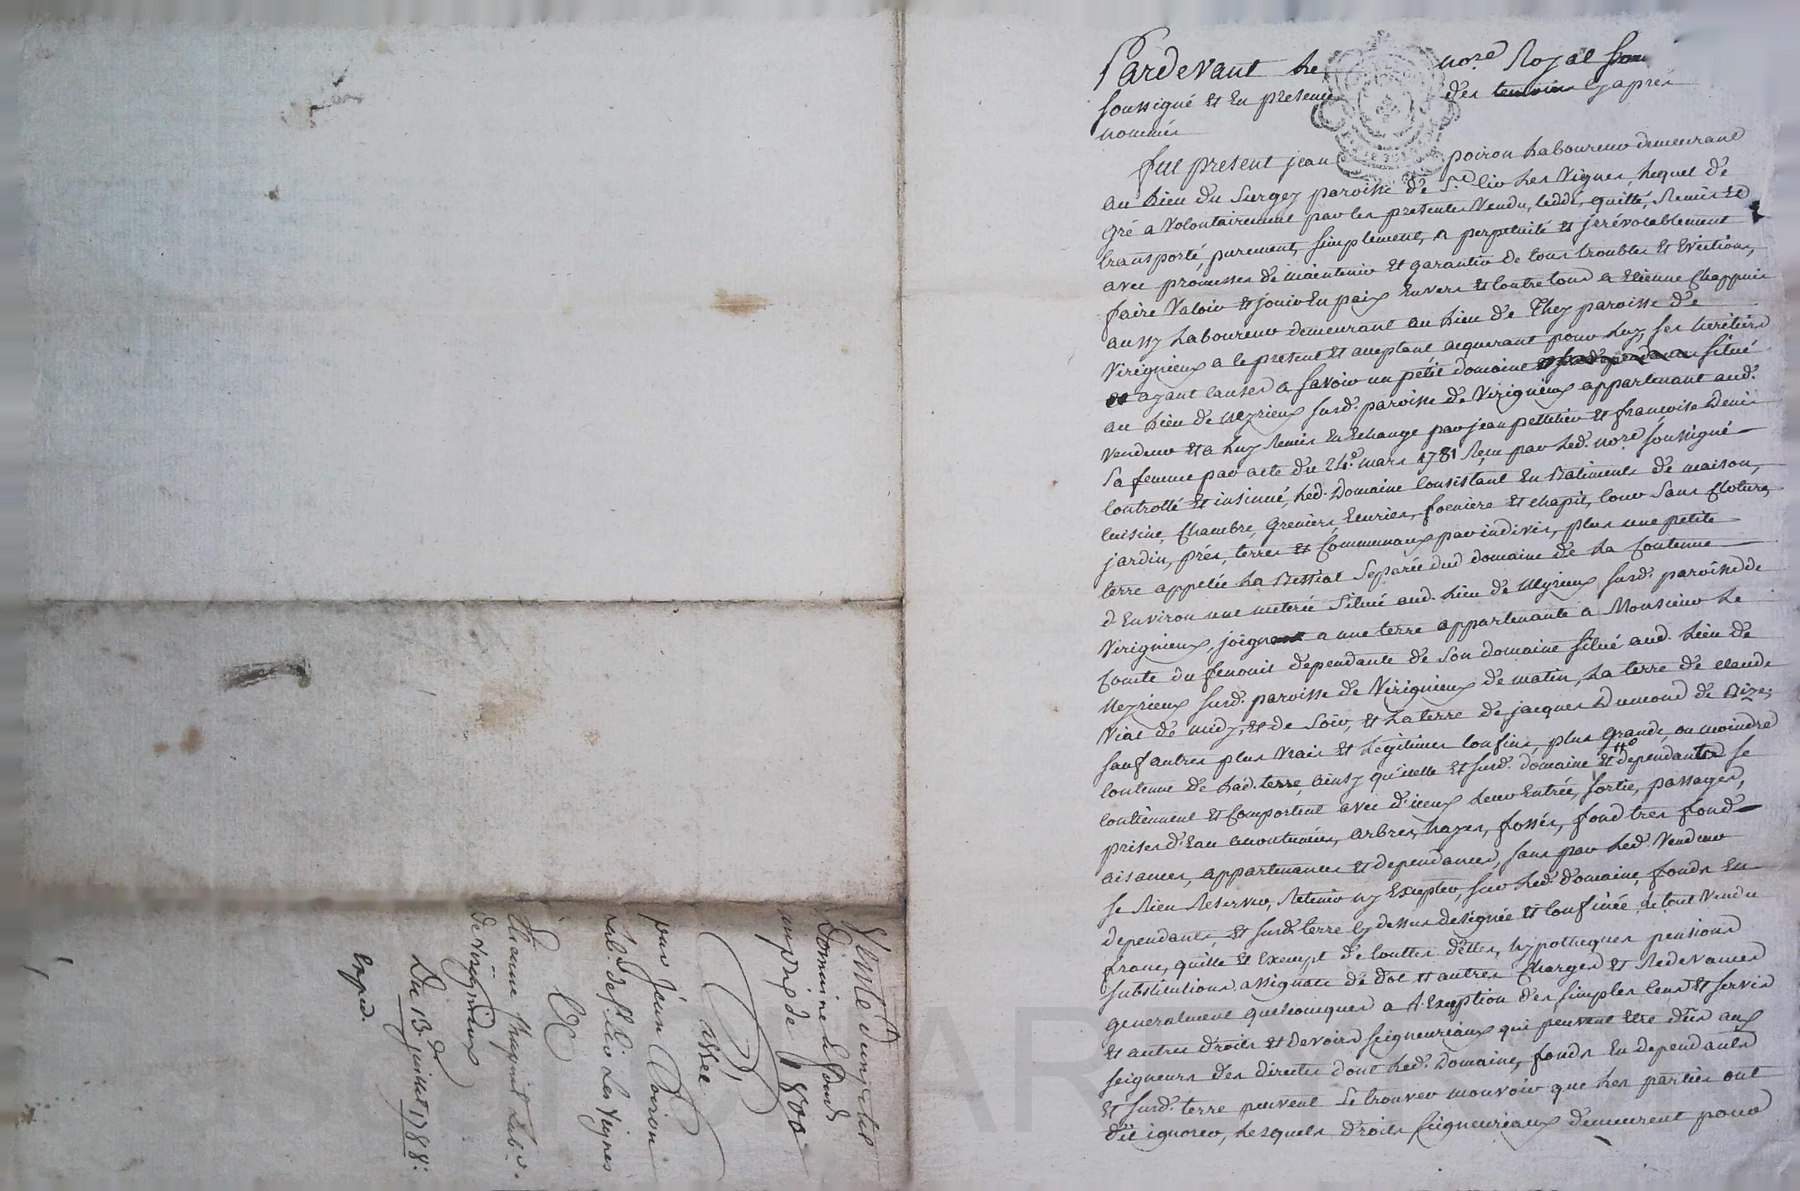 Pardevant le nore Royal
soussigné et En presence des temoins cy apres
nommés
fut present jean poiron Laboureur demeurant
au Lieu du Surgey paroisse de St. Cir Les Vignes, lequel de
gré a volontairement par les presentes Vendu, ceddé, quitté, Remis et
transporté, purement, simplement, a perpetuité et jrrévocablement
avec promesses de maintenir et garantir de tous troubles et Evictions,
faire Valoir et jouir En paix Envers et contre tous a Etienne Chappuis
aussy Laboureur demeurant au Lieu de They paroisse de
Virignieux a le present et acceptant acquerant pour luy, ses heritiers
et ayant causes a savoir un petit domaine situé
au Lieu de Meyrieux susd. paroisse de Virignieux appartenant aud.
Vendeur et a luy Remis En Echange par jean pelletier et francoise Denis
Sa femme par acte du 24e mars 1781 Reçu par led. nore soussigné
controllé et insinué, led. Domaine Consistant En Batiments de maison,
cuisine, chambre, greniers, Ecuries, feniere et chapit, cour sans cloture,
jardin, prés, terres et Communaux par indivis, plus une petite
terre appelée La Bessiat Separée dud domaine de la contenue
d'Environ une meterée située aud. Lieu de Meyrieux susd. paroisse de
Virignieux, joignant a une terre appartenante a Monsieur le
Comte du fenouil dependante de Son domaine situé aud. Lieu de
Meyrieux susd. paroisse de Virignieux de matin, la terre de claude
Vial de midy, et de Soir, et la terre de jacques Dumond de Bize;
sauf autres plus vrais et legitimes confins, plus grande, ou moindre
contenue de lad. terre, ainsy qu'icelle et susd. domaine et dependances se
contiennent et comportent avec d'iceux leur Entrée, sortie, passages,
prises d'Eau accoutumées, arbres, hayes, fossés, fond tres fond
aisances, appartenances et dependances, sans par led. Vendeur
se Rien Reserver, Retenir ny Excepter sur led. domaine, fonds En
dependants, et susd. terre cy dessus designée et confinée, le tout Vendu
franc, quitte et Exempt de touttes dettes, hypotheques pensions
substitutions, assignats de dot et autres Charges et Redevances
generalement quelconques a l'Exception des simples cens et servis
et autres droits et devoirs seigneuriaux qui peuvent etre dus aux
seigneurs des directes dont led. Domaine, fonds En dependants
et susd. terre peuvent se trouver mouvoir que les parties ont
dit ignorer, lesquels droits seigneuriaux demeurent pour
Vente d'un petit
Domaine & fonds
au prix de 1800#
passée
par Jean Poiron
Lab. de St. Cir Les Vignes
A
Etienne Chapuis Lab.r.
de Virignieux
Du 13e juillet 1788:
Exped.